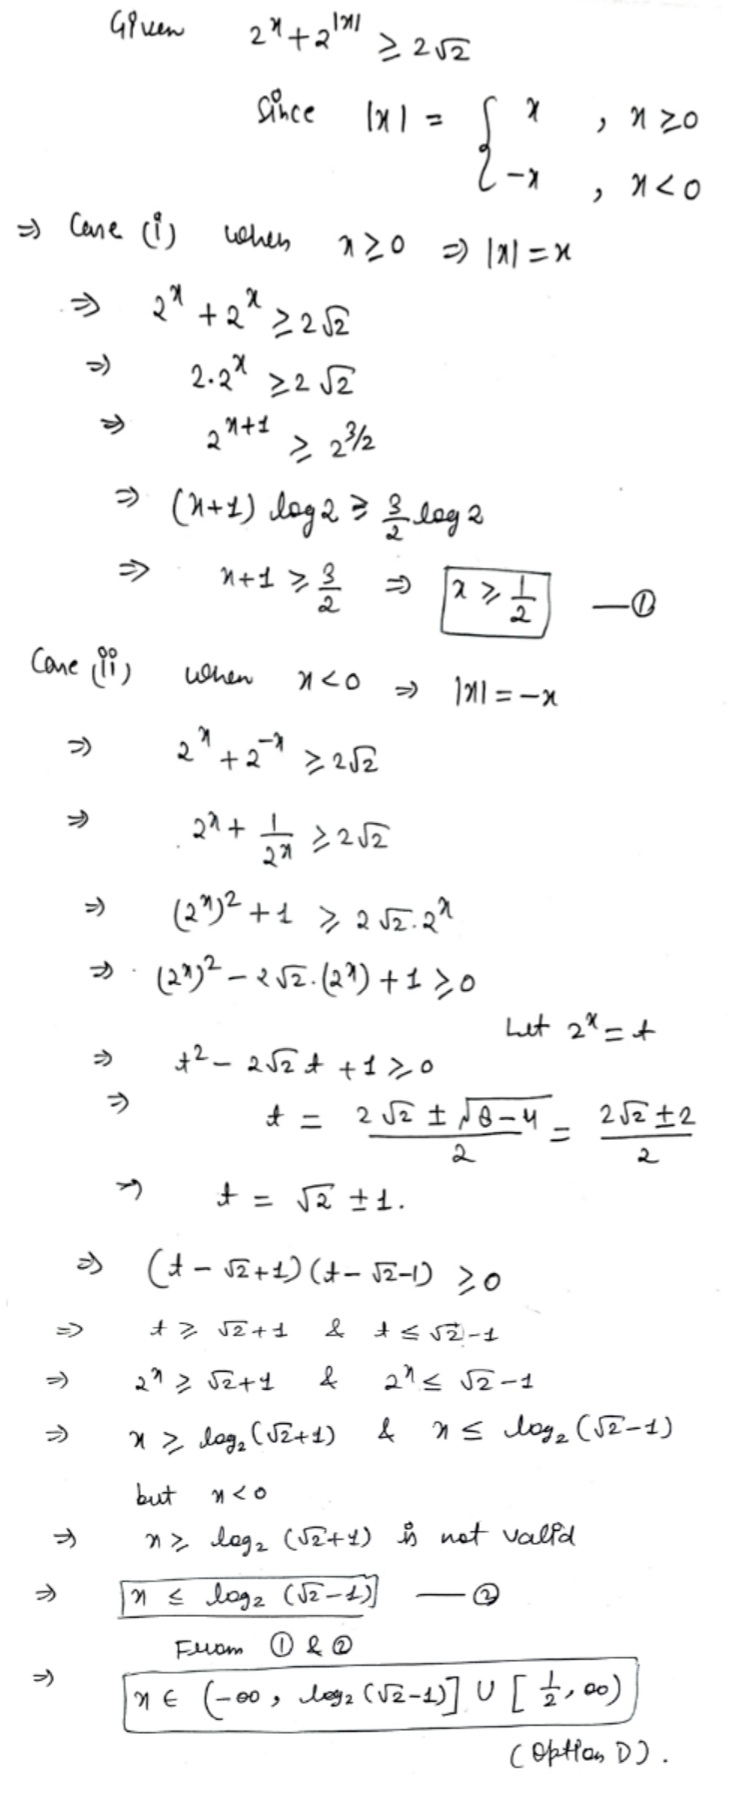 Given 2^x + 2^|x| ≥ 2√2
Since |x| = { x , x ≥ 0
-x , x < 0
⇒ Case (i) when x ≥ 0 ⇒ |x| = x
⇒ 2^x + 2^x ≥ 2√2
⇒ 2·2^x ≥ 2√2
⇒ 2^(x+1) ≥ 2^(3/2)
⇒ (x+1) log 2 ≥ 3/2 log 2
⇒ x+1 ≥ 3/2 ⇒ x ≥ 1/2 —①
Case (ii) when x < 0 ⇒ |x| = -x
⇒ 2^x + 2^-x ≥ 2√2
⇒ 2^x + 1/2^x ≥ 2√2
⇒ (2^x)^2 + 1 ≥ 2√2·2^x
⇒ (2^x)^2 - 2√2·(2^x) + 1 ≥ 0
Let 2^x = t
⇒ t^2 - 2√2 t + 1 ≥ 0
⇒ t = (2√2 ± √(8-4))/2 = (2√2 ± 2)/2
⇒ t = √2 ± 1.
⇒ (t - √2+1)(t - √2-1) ≥ 0
⇒ t ≥ √2+1 & t ≤ √2-1
⇒ 2^x ≥ √2+1 & 2^x ≤ √2-1
⇒ x ≥ log₂(√2+1) & x ≤ log₂(√2-1)
but x < 0
⇒ x ≥ log₂(√2+1) is not valid
⇒ x ≤ log₂(√2-1) —②
From ① & ②
⇒ x ∈ (-∞, log₂(√2-1)] ∪ [1/2, ∞)
(Option D).